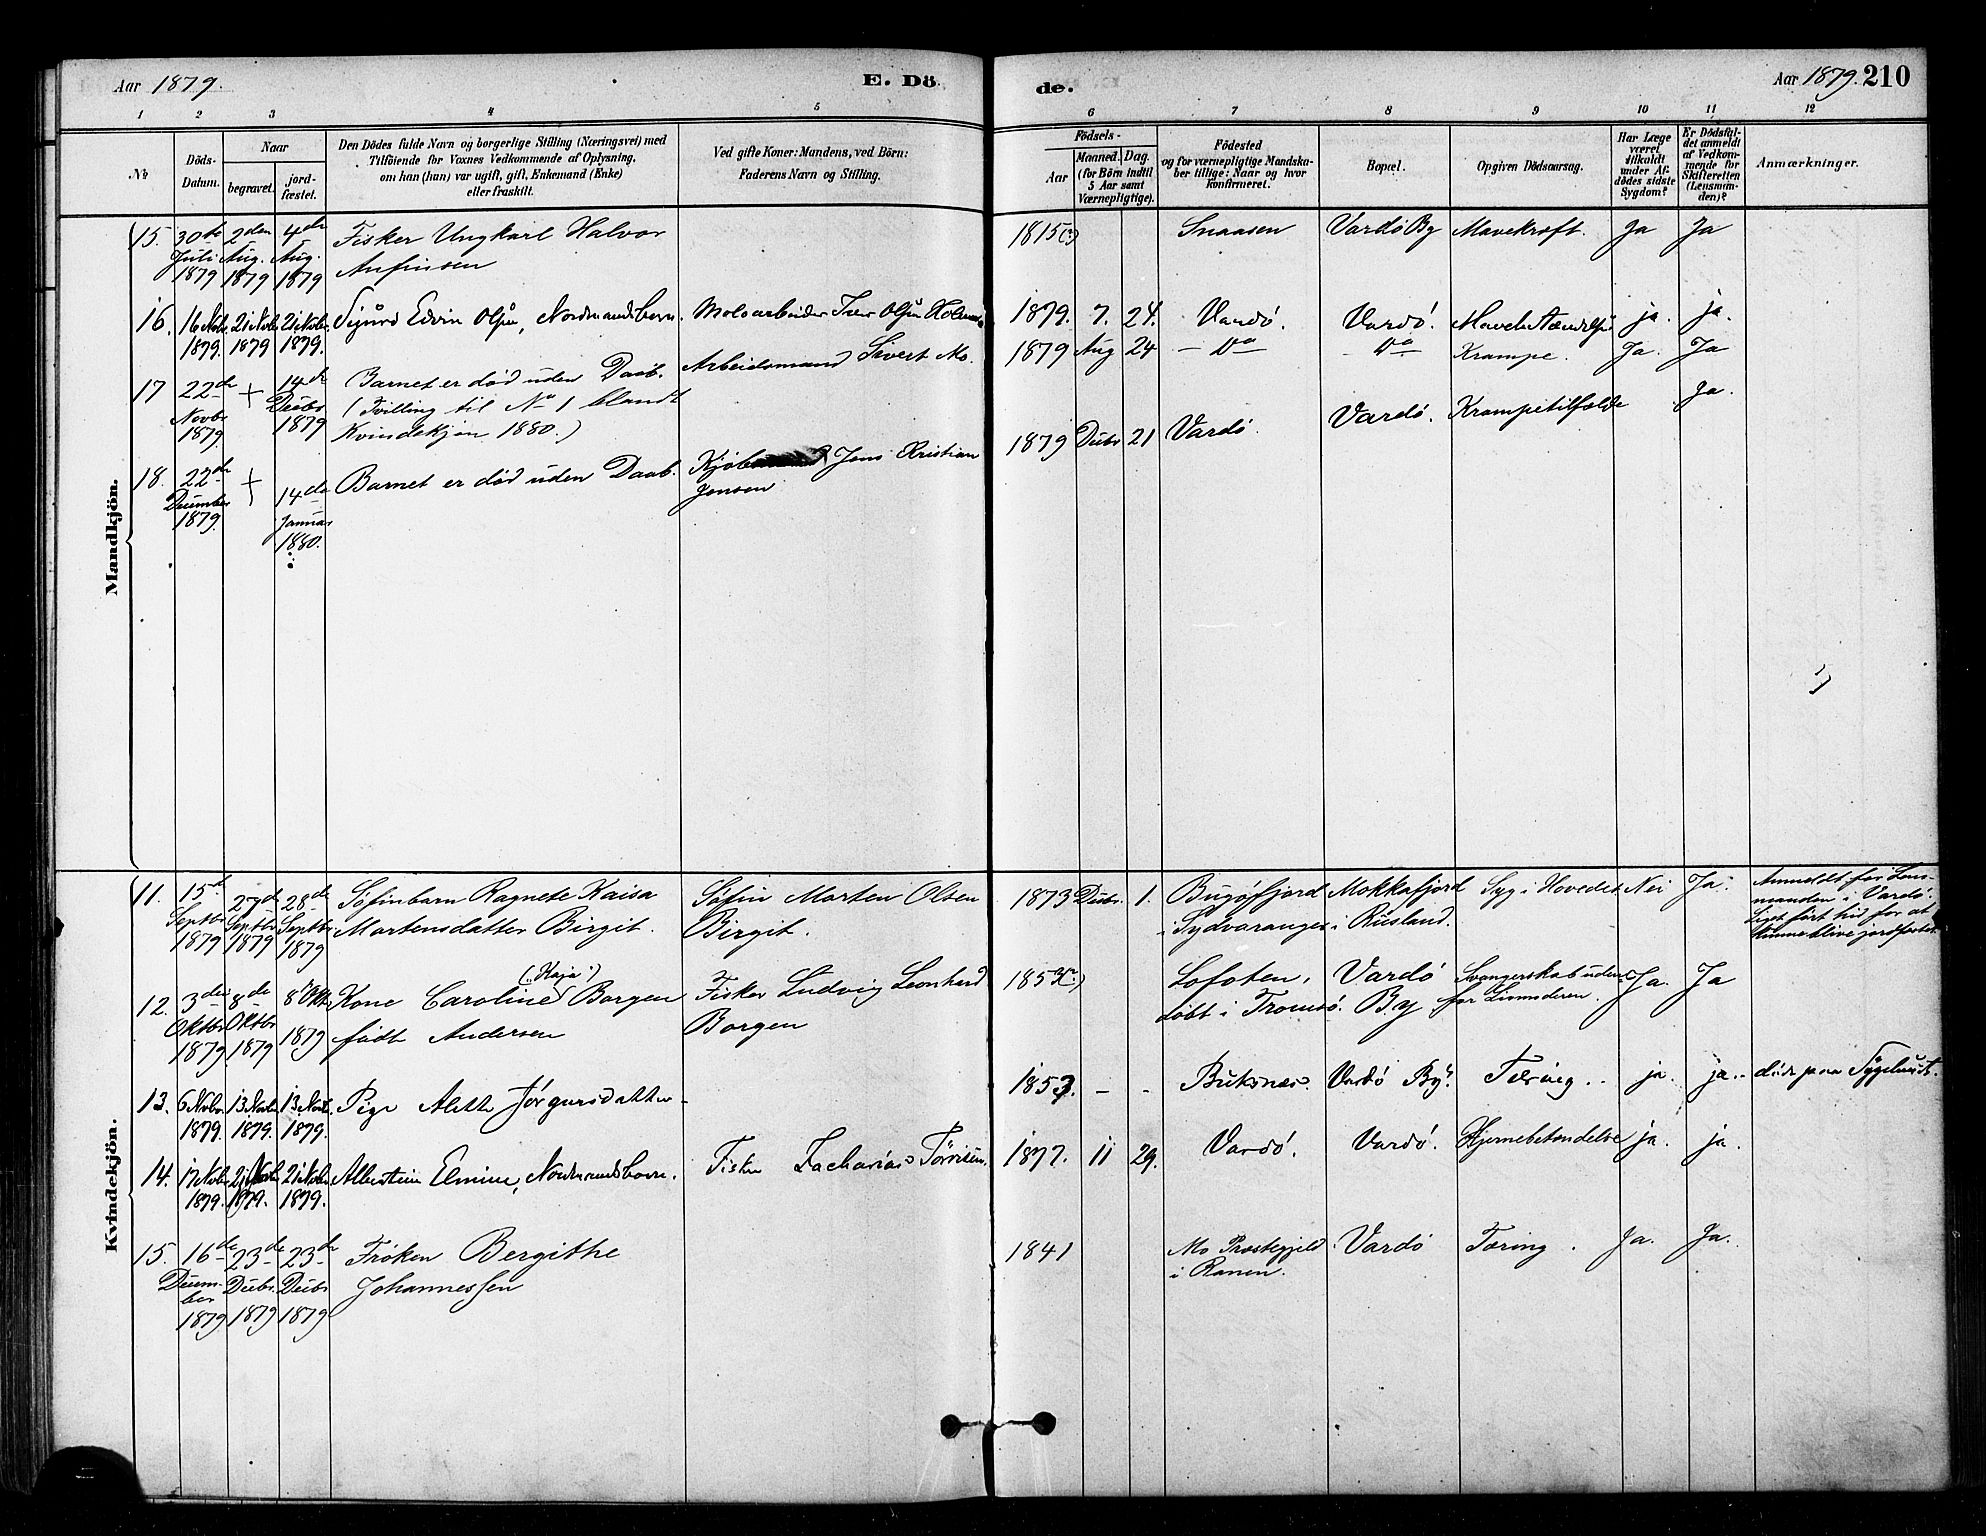 Aar 1879.
E. Dö
de.
Aar 1879. 210
1 2 3 4 5 6 7 8 9 10 11 12
No
Döds-
Datum.
Naar
begravet.
jord-
fæstet.
Den Dödes fulde Navn og borgerlige Stilling (Næringsvei) med
Tilföiende for Voxnes Vedkommende af Oplysning,
om han (hun) var ugift, gift, Enkemand (Enke)
eller fraskilt.
Ved gifte Koner: Mandens, ved Börn:
Faderens Navn og Stilling.
Födsels-
Aar
Maaned. Dag.
(for Börn indtil
5 Aar samt
Værnepligtige).
Födested
og for værnepligtige Mandska-
ber tillige: Naar og hvor
konfirmeret.
Bopæl.
Opgiven Dödsaarsag.
Har Læge
været
tilkaldt
under Af-
dödes sidste
Sygdom?
Er Dödsfal-
det anmeldt
af Vedkom-
mende for
Skifteretten
(Lensman-
den)?
Anmærkninger.
Mandkjön.
15. 30te Juli 1879 2den Aug. 1879 4de Aug. 1879
Fisker Ungkarl Halvor
Anfinsen
1815(?) Snaasen Vardö By Mavekræft. Ja Ja
16. 16 Nobr. 1879. 21 Nobr. 1879 21 Nobr. 1879.
Sigurd Edvin Olsen, Nordmandsbarn. Moloarbeider Iver Olsen Holmen
1879. 7. 24. Vardö. Vardö. ja. ja.
17 22de Novbr 1879 + 14de Decbr 1879
Barnet er död uden Daab.
(Tvilling til No 1 blandt
Kvindekjön 1880.)
Arbeidsmand Sivert Mo.
1879 Aug 24 — Do — — Do — Krampe. Ja. Ja
18. 22de December 1879. + 14de Januar 1880.
Barnet er död uden Daab.
Jens Kristian
Jensen
1879 Decbr 21 Vardö. Vardö. Krampetilfælde Ja.
Kvindekjön.
11. 15de Septbr 1879 27de Septbr 1879 28de Septbr 1879
Söfinbarn Ragnete Kaisa
Martensdatter Birgit.
Söfin Morten Olsen
Birgit.
1873 Decbr. 1. Bugöfjord
i Sydvaranger
Mokkafjord
i Rusland.
Syg i Hovedet Nei Ja.
Anmeldt for Lens-
manden i Vardö.
Liget fört hid for at
kunne blive jordfæstet.
12. 3die Oktbr 1879 8de Oktbr 1879 8de Oktbr 1879
(Kaja)
Kone Caroline Borgen
födt Andersen
Fisker Ludvig Leonhard
Borgen
Lofoten,
döbt i Tromsö.
Vardö
By
Svangerskab uden-
for Livmoderen.
Ja. Ja
13. 6 Nobr. 1879. 13. Novbr 1879. 13. Novbr. 1879.
Pige Aleth Jörgensdatter
1853. — - Buksnæs. Vardö By. Tæring. ja. ja. döde paa Sygehuset.
14. 17 Nobr. 1879. 21 Novbr 1879. 21 Nobr. 1879.
Albertine Elmine, Nordmandsbarn. Fisker Zacharias Törrisen.
1877. 11 29. Vardö. Vardö. Hjernebetændelse ja. ja.
15. 16de December 1879 23de Decbr. 1879 23de Decbr 1879
Fröken Bergithe
Johannessen
1841 Mo Præstegjeld
i Ranen.
Vardö Tæring. Ja. Ja.